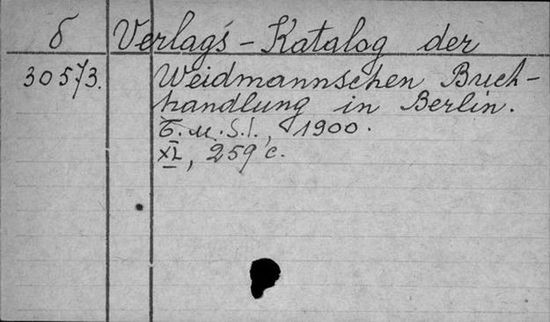 б Verlags-Katalog der
30573. Weidmannschen Buch-
handlung in Berlin.
Б. м. S. l., 1900.
XI, 259 с.